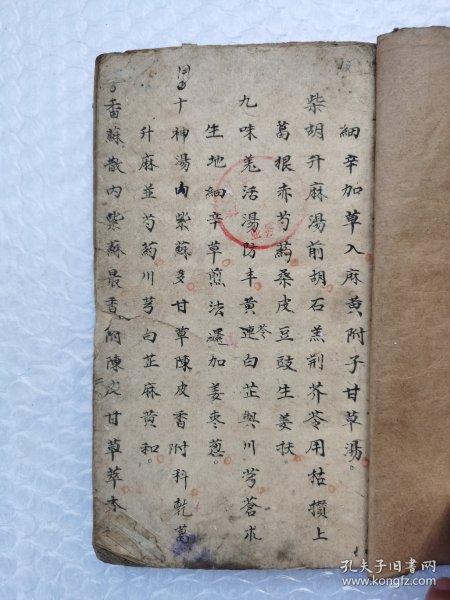 細辛加草入麻黄附子甘草湯。
柴胡升麻湯前胡石羔荆芥苓用枯攢上
葛根赤芍葯桑皮豆豉生姜扶。
九味羗活湯防丰黄連芩白芷與川芎蒼朮
生地細辛草煎法還加姜枣葱。
十神湯内紫蘇多甘草陳皮香附科乾葛
升麻並芍葯川芎白芷麻黄和。
香蘇散内紫蘇最香附陳皮甘草萃本
孔夫子旧书网
www.kongfz.com